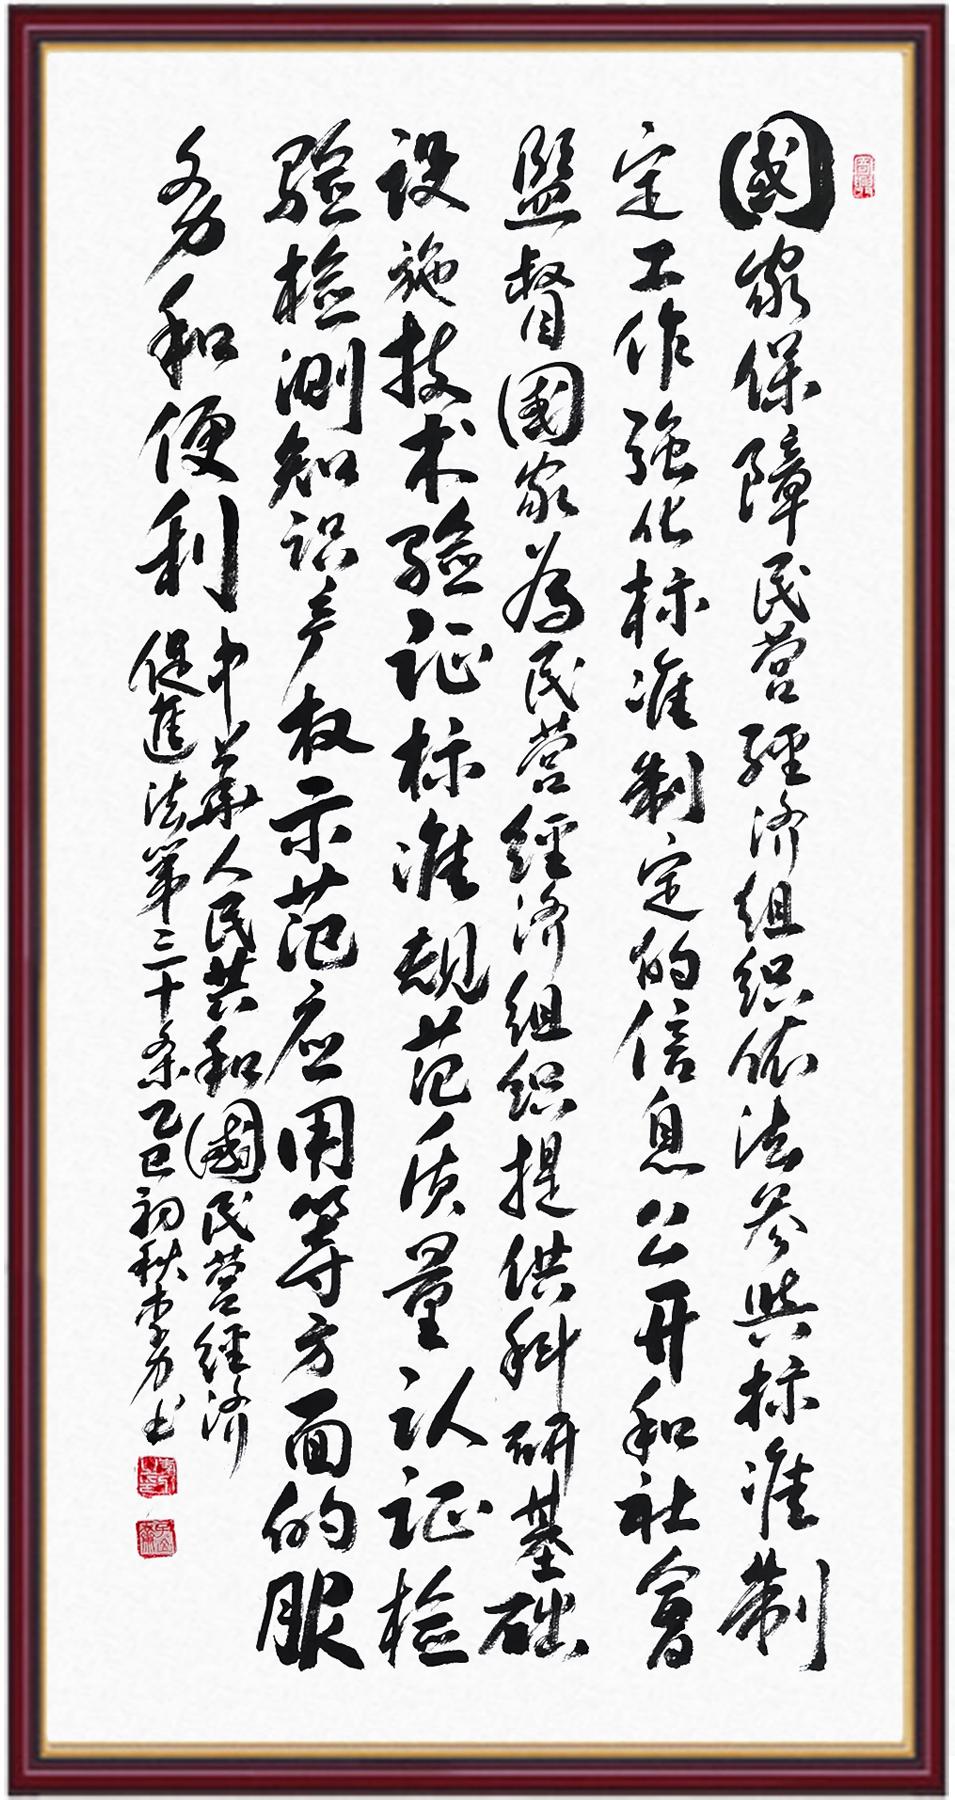 國家保障民营經济组织依法参與标准制
定工作强化标准制定的信息公开和社會
監督國家為民营經济组织提供科研基础
设施技术验证标准规范质量认证检
验检测知识产权示范应用等方面的服
务和便利
中華人民共和國民营經济
促進法第三十条乙巳初秋李勇书